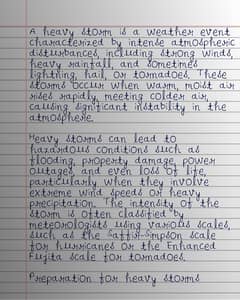 A heavy storm is a weather event
characterized by intense atmospheric
disturbances, including strong winds,
heavy rainfall, and sometimes
lightning, hail, or tornadoes. These
storms occur when warm, moist air
rises rapidly, meeting colder air,
causing significant instability in the
atmosphere.
Heavy storms can lead to
hazardous conditions such as
flooding, property damage, power
outages, and even loss of life,
particularly when they involve
extreme wind speeds or heavy
precipitation. The intensity of the
storm is often classified by
meteorologists using various scales,
such as the Saffir-Simpson scale
for hurricanes or the Enhanced
Fujita scale for tornadoes.
Preparation for heavy storms